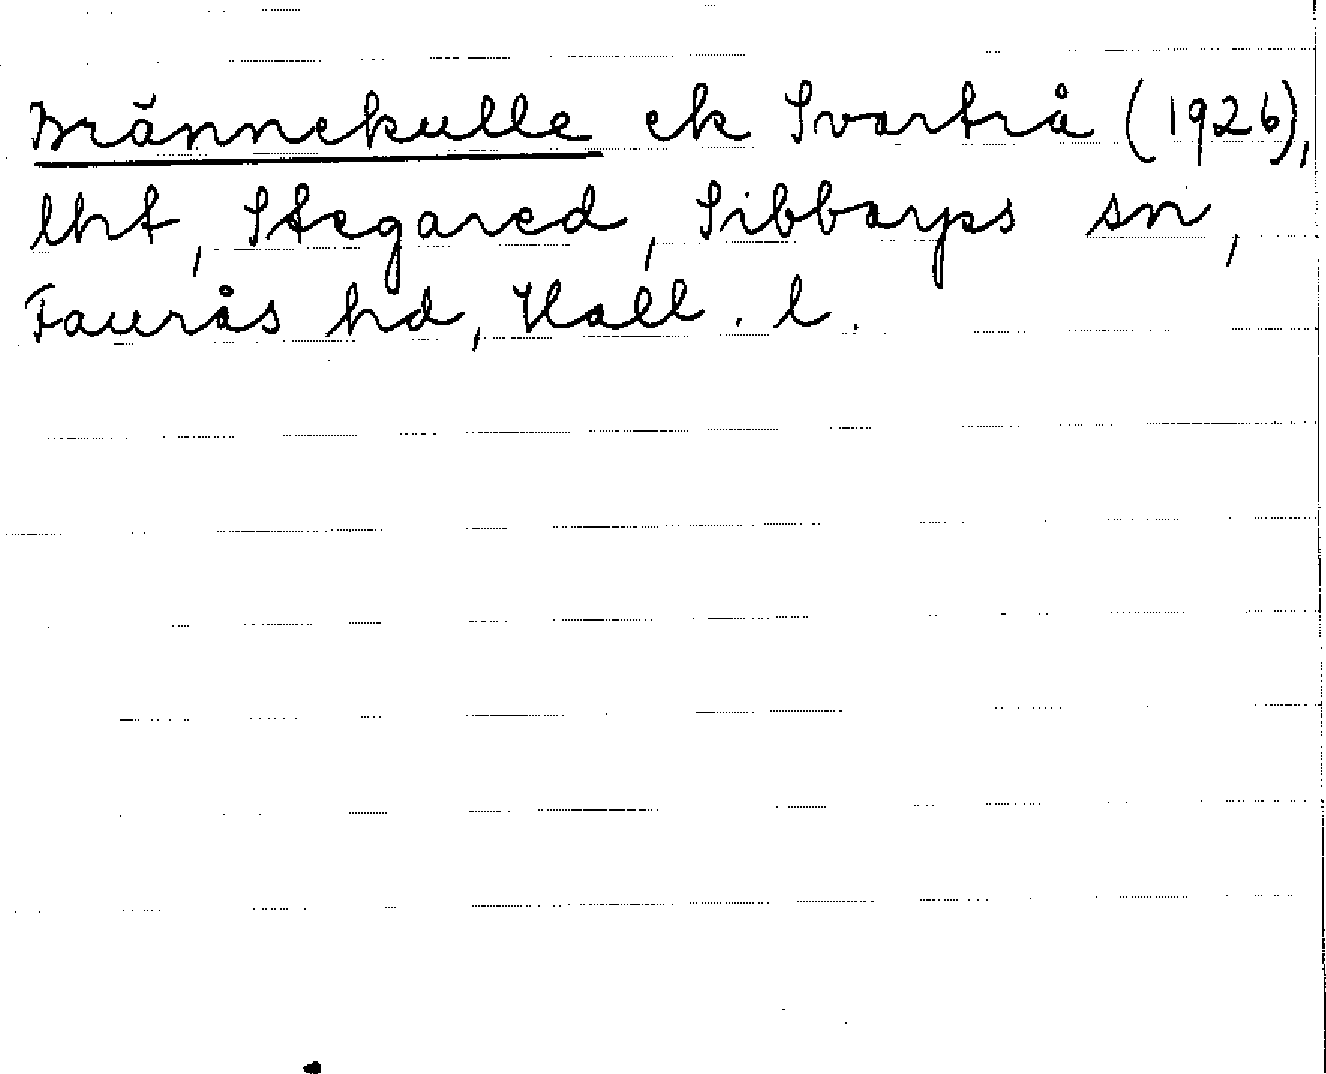 Brännekulle ek Svartrå (1926),
lht, Stegared, Sibbarps sn,
Faurås hd, Hall. l.